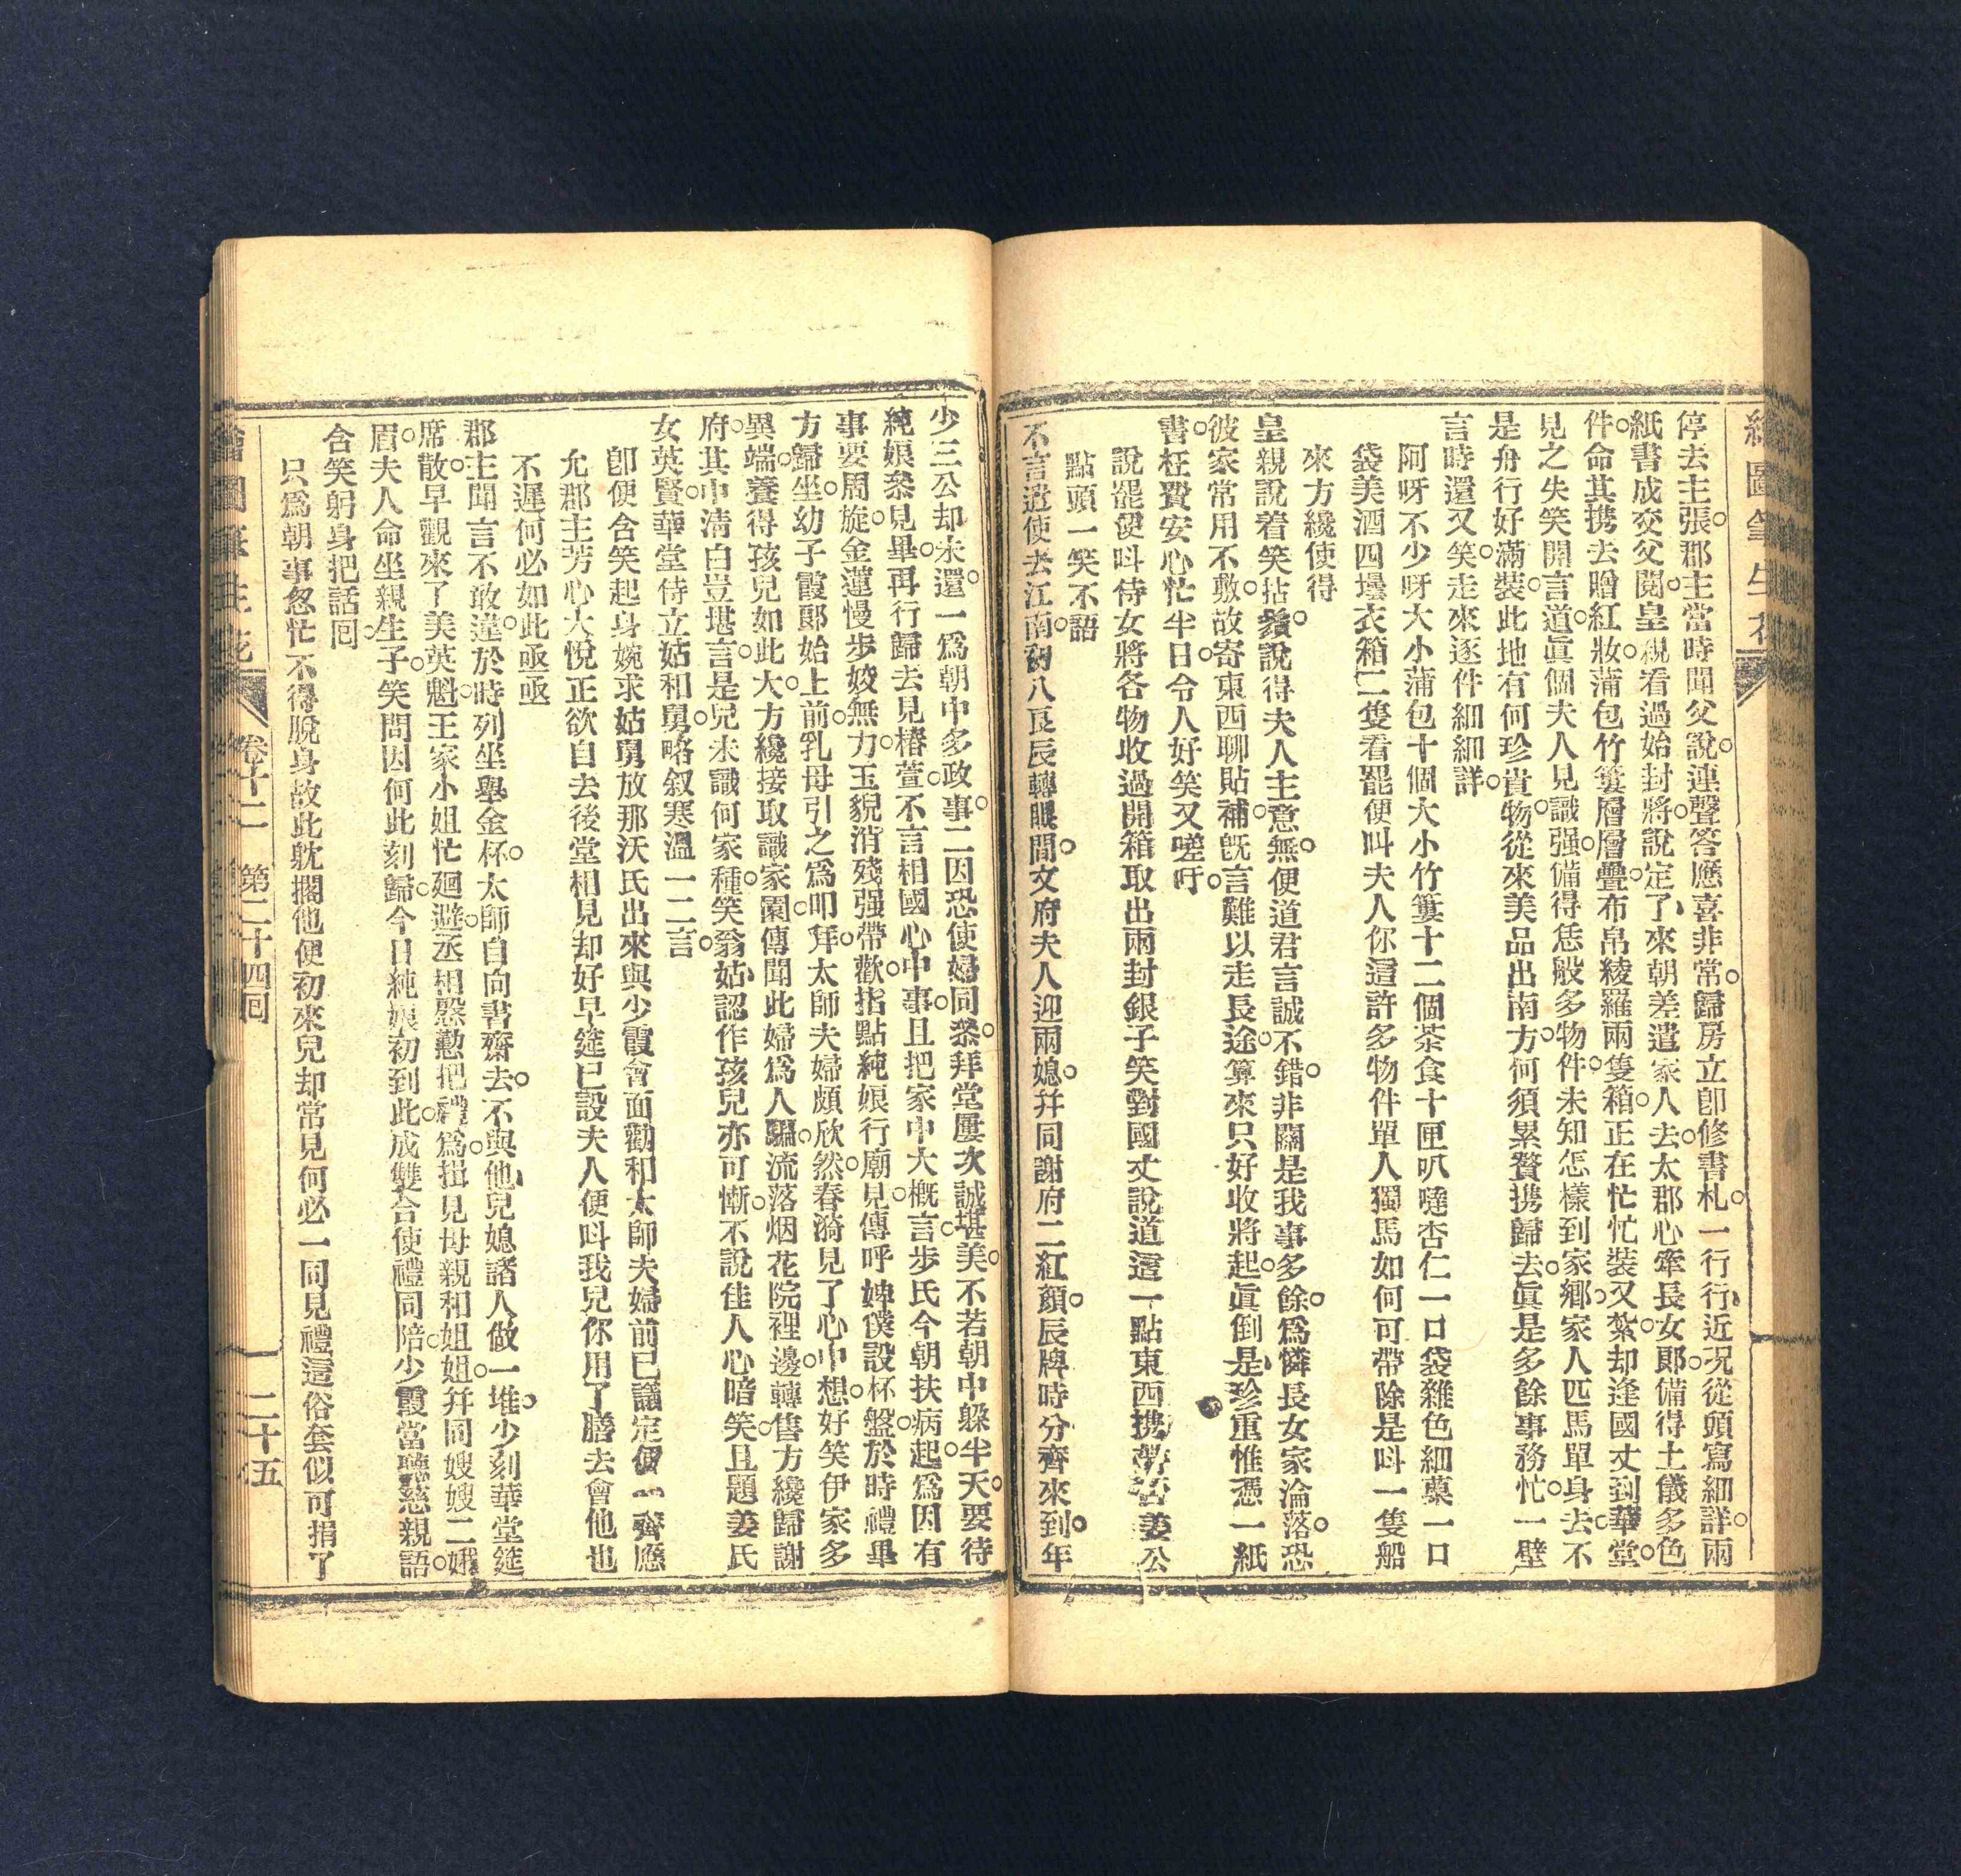 停去主張○郡主當時聞父說○連聲答應喜非常○歸房立卽修書札○一行行近况從頭寫細詳○兩
紙書成交父閱○皇親看過始封將○說定了來朝差遣家人去○太郡心牽長女郞○備得土儀多色
件○命其携去贈紅妝○蒲包竹簍層層疊○布帛綾羅兩隻箱○正在忙忙裝又紮○却逢國丈到華堂○
見之失笑開言道○眞個夫人見識强○備得恁般多物件○未知怎樣到家鄉○家人匹馬單身去○不
是舟行好滿裝○此地有何珍貴物○從來美品出南方○何須累贅携歸去○眞是多餘事務忙○一壁
言時還又笑○走來逐件細細詳○
阿呀不少呀大小蒲包十個大小竹簍十二個茶食十匣叭噠杏仁一口袋雜色細菓一口
袋美酒四壜衣箱二隻看罷便叫夫人你這許多物件單人獨馬如何可帶除是呌一隻船
來方纔使得
皇親說着笑拈鬚○說得夫人主意無○便道君言誠不錯○非關是我事多餘○爲憐長女家淪落○恐
彼家常用不敷○故寄東西聊貼補○旣言難以走長途○算來只好收將起○眞倒是珍重惟憑一紙
書○枉費安心忙半日○令人好笑又嗟吁○
說罷便呌侍女將各物收過開箱取出兩封銀子笑對國丈說道這一點東西携帶否姜公
點頭一笑不語
不言遣使去江南○初八良辰轉眼間○文府夫人迎兩媳○幷同謝府二紅顏○辰牌時分齊來到○年
少三公却未還○一爲朝中多政事○二因恐使婦同叅○拜堂屢次誠堪美○不若朝中躱半天○要待
純娘叅見畢○再行歸去見椿萱○不言相國心中事○且把家中大槪言○步氏今朝扶病起○爲因有
事要周旋○金蓮慢步姣無力○玉貌消殘强帶歡○指點純娘行廟見○傳呼婢僕設杯盤○於時禮畢
方歸坐○幼子霞郞始上前○乳母引之爲叩拜○太師夫婦頗欣然○春漪見了心中想○好笑伊家多
異端○養得孩兒如此大○方纔接取識家園○傳聞此婦爲人騙○流落烟花院裡邊○轉售方纔歸謝
府○其中清白豈堪言○是兒未識何家種○笑翁姑認作孩兒亦可慚○不說佳人心暗笑○且題姜氏
女英賢○華堂侍立姑和舅○略叙寒溫一二言○
卽便含笑起身婉求姑舅放那沃氏出來與少霞會面勸和太師夫婦前已議定便一齊應
允郡主芳心大悅正欲自去後堂相見却好早筵已設夫人便呌我兒你用了膳去會他也
不遲何必如此亟亟
郡主聞言不敢違○於時列坐舉金杯○太師自向書齋去○不與他兒媳諸人做一堆○少刻華堂筵
席散○早觀來了美英魁○王家小姐忙廻避○丞相慇懃把禮爲○揖見母親和姐姐○幷同嫂嫂二娥
眉○夫人命坐親生子○笑問因何此刻歸○今日純娘初到此○成雙合使禮同陪○少霞當聽慈親語○
含笑躬身把話囘○
只爲朝事忽忙不得脫身故此躭擱他便初來兒却常見何必一同見禮這俗套似可捐了
卷十二　第二十四囘
二十五